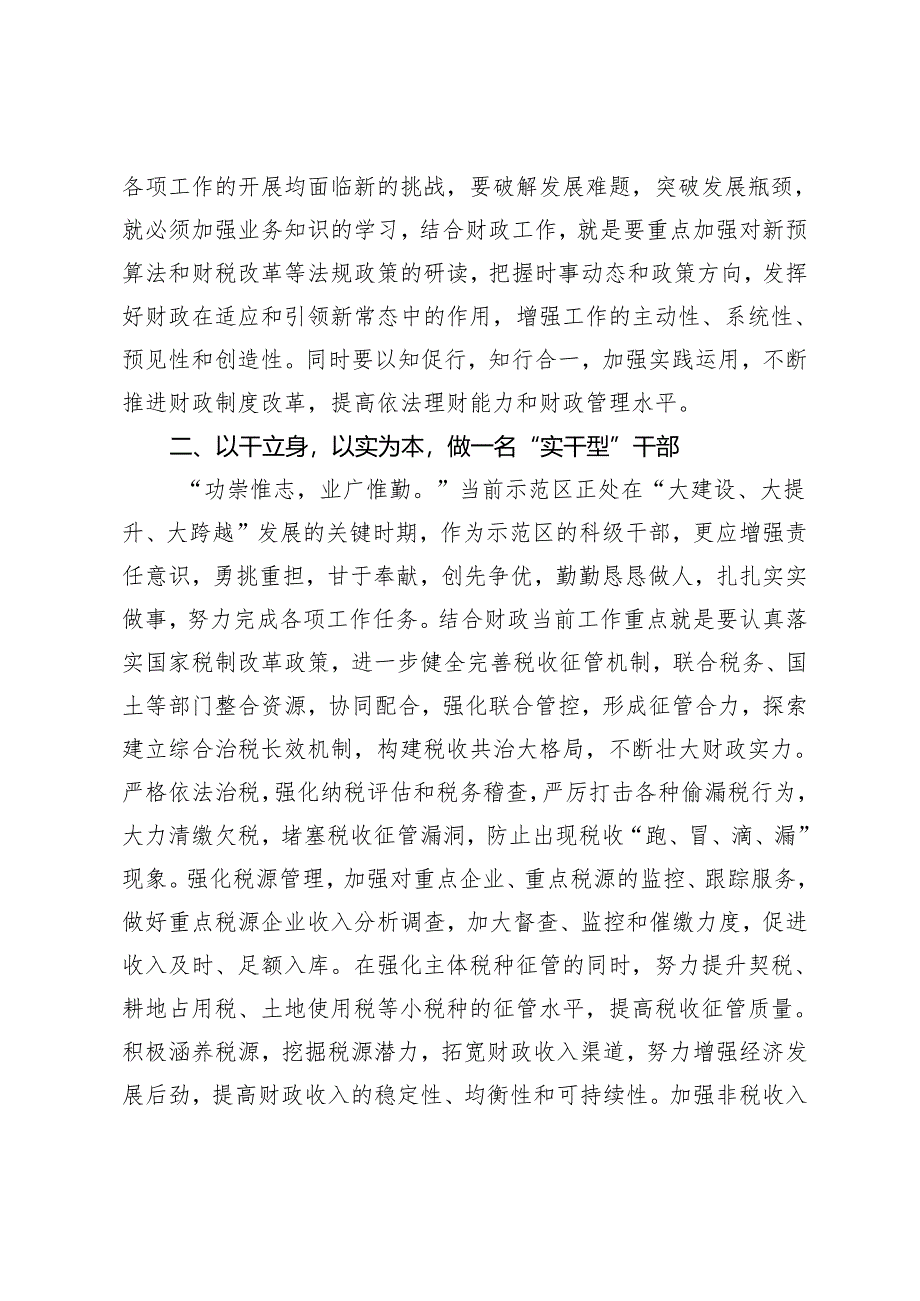 各项工作的开展均面临新的挑战，要破解发展难题，突破发展瓶颈，
就必须加强业务知识的学习，结合财政工作，就是要重点加强对新预
算法和财税改革等法规政策的研读，把握时事动态和政策方向，发挥
好财政在适应和引领新常态中的作用，增强工作的主动性、系统性、
预见性和创造性。同时要以知促行，知行合一，加强实践运用，不断
推进财政制度改革，提高依法理财能力和财政管理水平。
二、以干立身，以实为本，做一名“实干型”干部
“功崇惟志，业广惟勤。”当前示范区正处在“大建设、大提
升、大跨越”发展的关键时期，作为示范区的科级干部，更应增强责
任意识，勇挑重担，甘于奉献，创先争优，勤勤恳恳做人，扎扎实实
做事，努力完成各项工作任务。结合财政当前工作重点就是要认真落
实国家税制改革政策，进一步健全完善税收征管机制，联合税务、国
土等部门整合资源，协同配合，强化联合管控，形成征管合力，探索
建立综合治税长效机制，构建税收共治大格局，不断壮大财政实力。
严格依法治税，强化纳税评估和税务稽查，严厉打击各种偷漏税行为，
大力清缴欠税，堵塞税收征管漏洞，防止出现税收“跑、冒、滴、漏”
现象。强化税源管理，加强对重点企业、重点税源的监控、跟踪服务，
做好重点税源企业收入分析调查，加大督查、监控和催缴力度，促进
收入及时、足额入库。在强化主体税种征管的同时，努力提升契税、
耕地占用税、土地使用税等小税种的征管水平，提高税收征管质量。
积极涵养税源，挖掘税源潜力，拓宽财政收入渠道，努力增强经济发
展后劲，提高财政收入的稳定性、均衡性和可持续性。加强非税收入